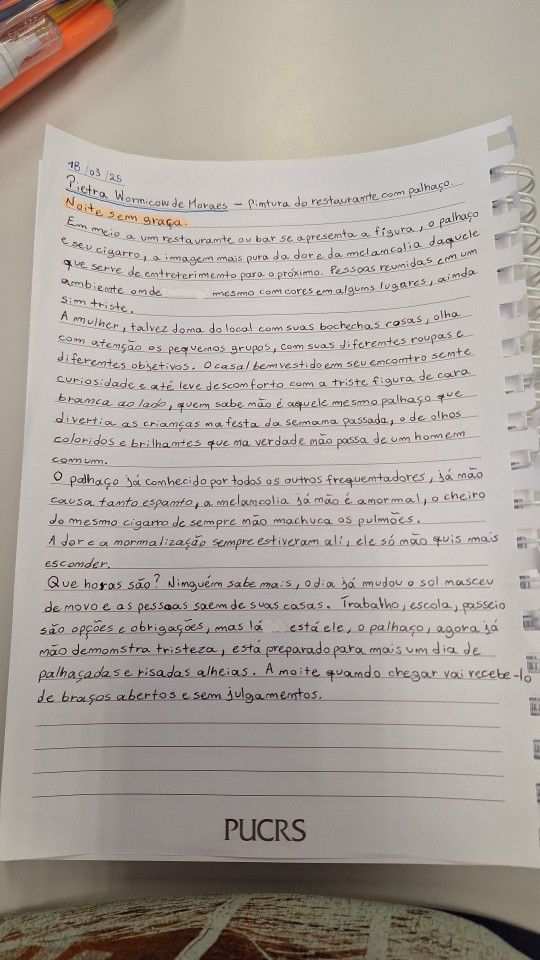 18/03/25
Pietra Wormicow de Moraes - Pintura do restaurante com palhaço.
Noite sem graça.
Em meio a um restaurante ou bar se apresenta a figura, o palhaço
e seu cigarro, a imagem mais pura da dor e da melancolia daquele
que serve de entreterimento para o próximo. Pessoas reunidas em um
ambiente onde mesmo com cores em alguns lugares, ainda
sim triste.
A mulher, talvez dona do local com suas bochechas casas, olha
com atenção os pequenos grupos, com suas diferentes roupas e
diferentes objetivos. O casal bem vestido em seu encontro sente
curiosidade e até leve desconforto com a triste figura de cara
branca ao lado, quem sabe não é aquele mesmo palhaço que
divertia as crianças na festa da semana passada, o de olhos
coloridos e brilhantes que na verdade não passa de um homem
comum.
O palhaço já conhecido por todos os outros frequentadores, já não
causa tanto espanto, a melancolia já não é anormal, o cheiro
do mesmo cigarro de sempre não machuca os pulmões.
A dor e a normalização sempre estiveram ali, ele só não quis mais
esconder.
Que horas são? Ninguém sabe mais, o dia já mudou o sol nasceu
de novo e as pessoas saem de suas casas. Trabalho, escola, passeio
são opções e obrigações, mas lá está ele, o palhaço, agora já
não demonstra tristeza, está preparado para mais um dia de
palhaçadas e risadas alheias. A noite quando chegar vai recebe-lo
de braços abertos e sem julgamentos.
PUCRS